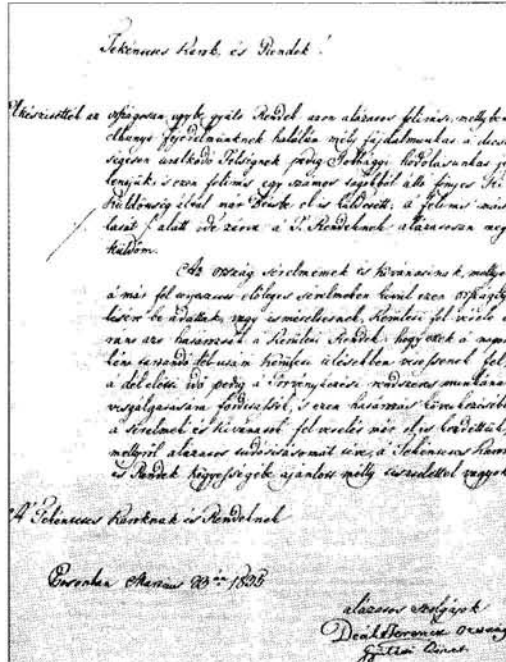 Tekéntetes Karok, és Rendek!
Elkészítették az országosan egybe gyűlt Rendek azon alázatos felirást, mellyben
elhunyt fejedelmünknek halálán mély fájdalmunkat, a dicső
ségesen uralkodó Felségnek pedig Jobbágyi hódolásunkat je
lentjük; s ezen felirás egy számos tagokból álló fényes
küldöttség által már Bécsbe el is küldetett; a felirás más
lását /. alatt ide zárva a T. Rendeknek alázatosan meg
küldöm.
Az ország sérelmeinek és kivánatinak, mellyek
a már fel terjesztett előleges sérelmeken kivül ezen országgyű
lésére be adattak, vagy ismételtettek, kerületi fel vétele
ránt azt határozták a Kerületi Rendek, hogy ezek a napon
ként tartandó délutáni kerületi ülésekben vétessenek fel,
a dél előtti idő pedig a Törvénykezési rendszeres munkának
vizsgálgatására fordíttassék, s ezen határozás következésében
a sérelmek és kivánatok fel vételét már el is kezdettük,
mellyről alázatos tudósításomat téve, a Tekéntetes Karok
és Rendek kegyességébe ajánlott mélly tisztelettel vagyok
A' Tekéntetes Karoknak és Rendeknek
Posonban Martius 23án 1835
alázatos szolgájok
Deák Ferencz Ország
gyűlési Követ